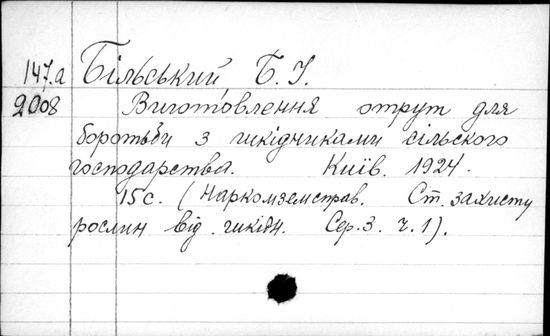 147.а Більський Б. І.
2008 Виготовлення отрут для
боротьби з шкідниками сільского
господарства. Київ. 1924.
15 с. (Наркомземстрав. Ст. захисту
рослин від шкідн. Сер. 3. ч. 1).